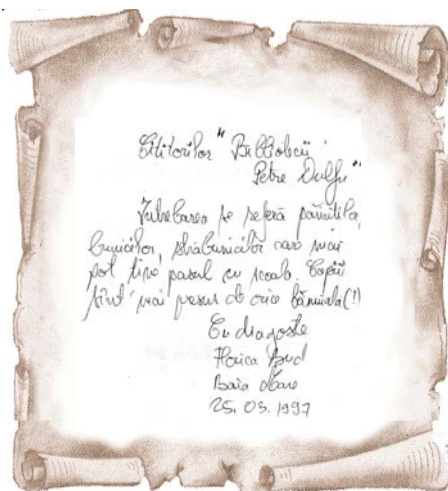 Cititorilor "Bibliotecii
Petre Dulfu"
Întrebarea se referă părinților,
bunicilor, străbunicilor care mai
pot ține pasul cu școala. Copiii
sînt mai presus de orice bănuială(!)
Cu dragoste
Florica Bud
Baia Mare
25. 03. 1997